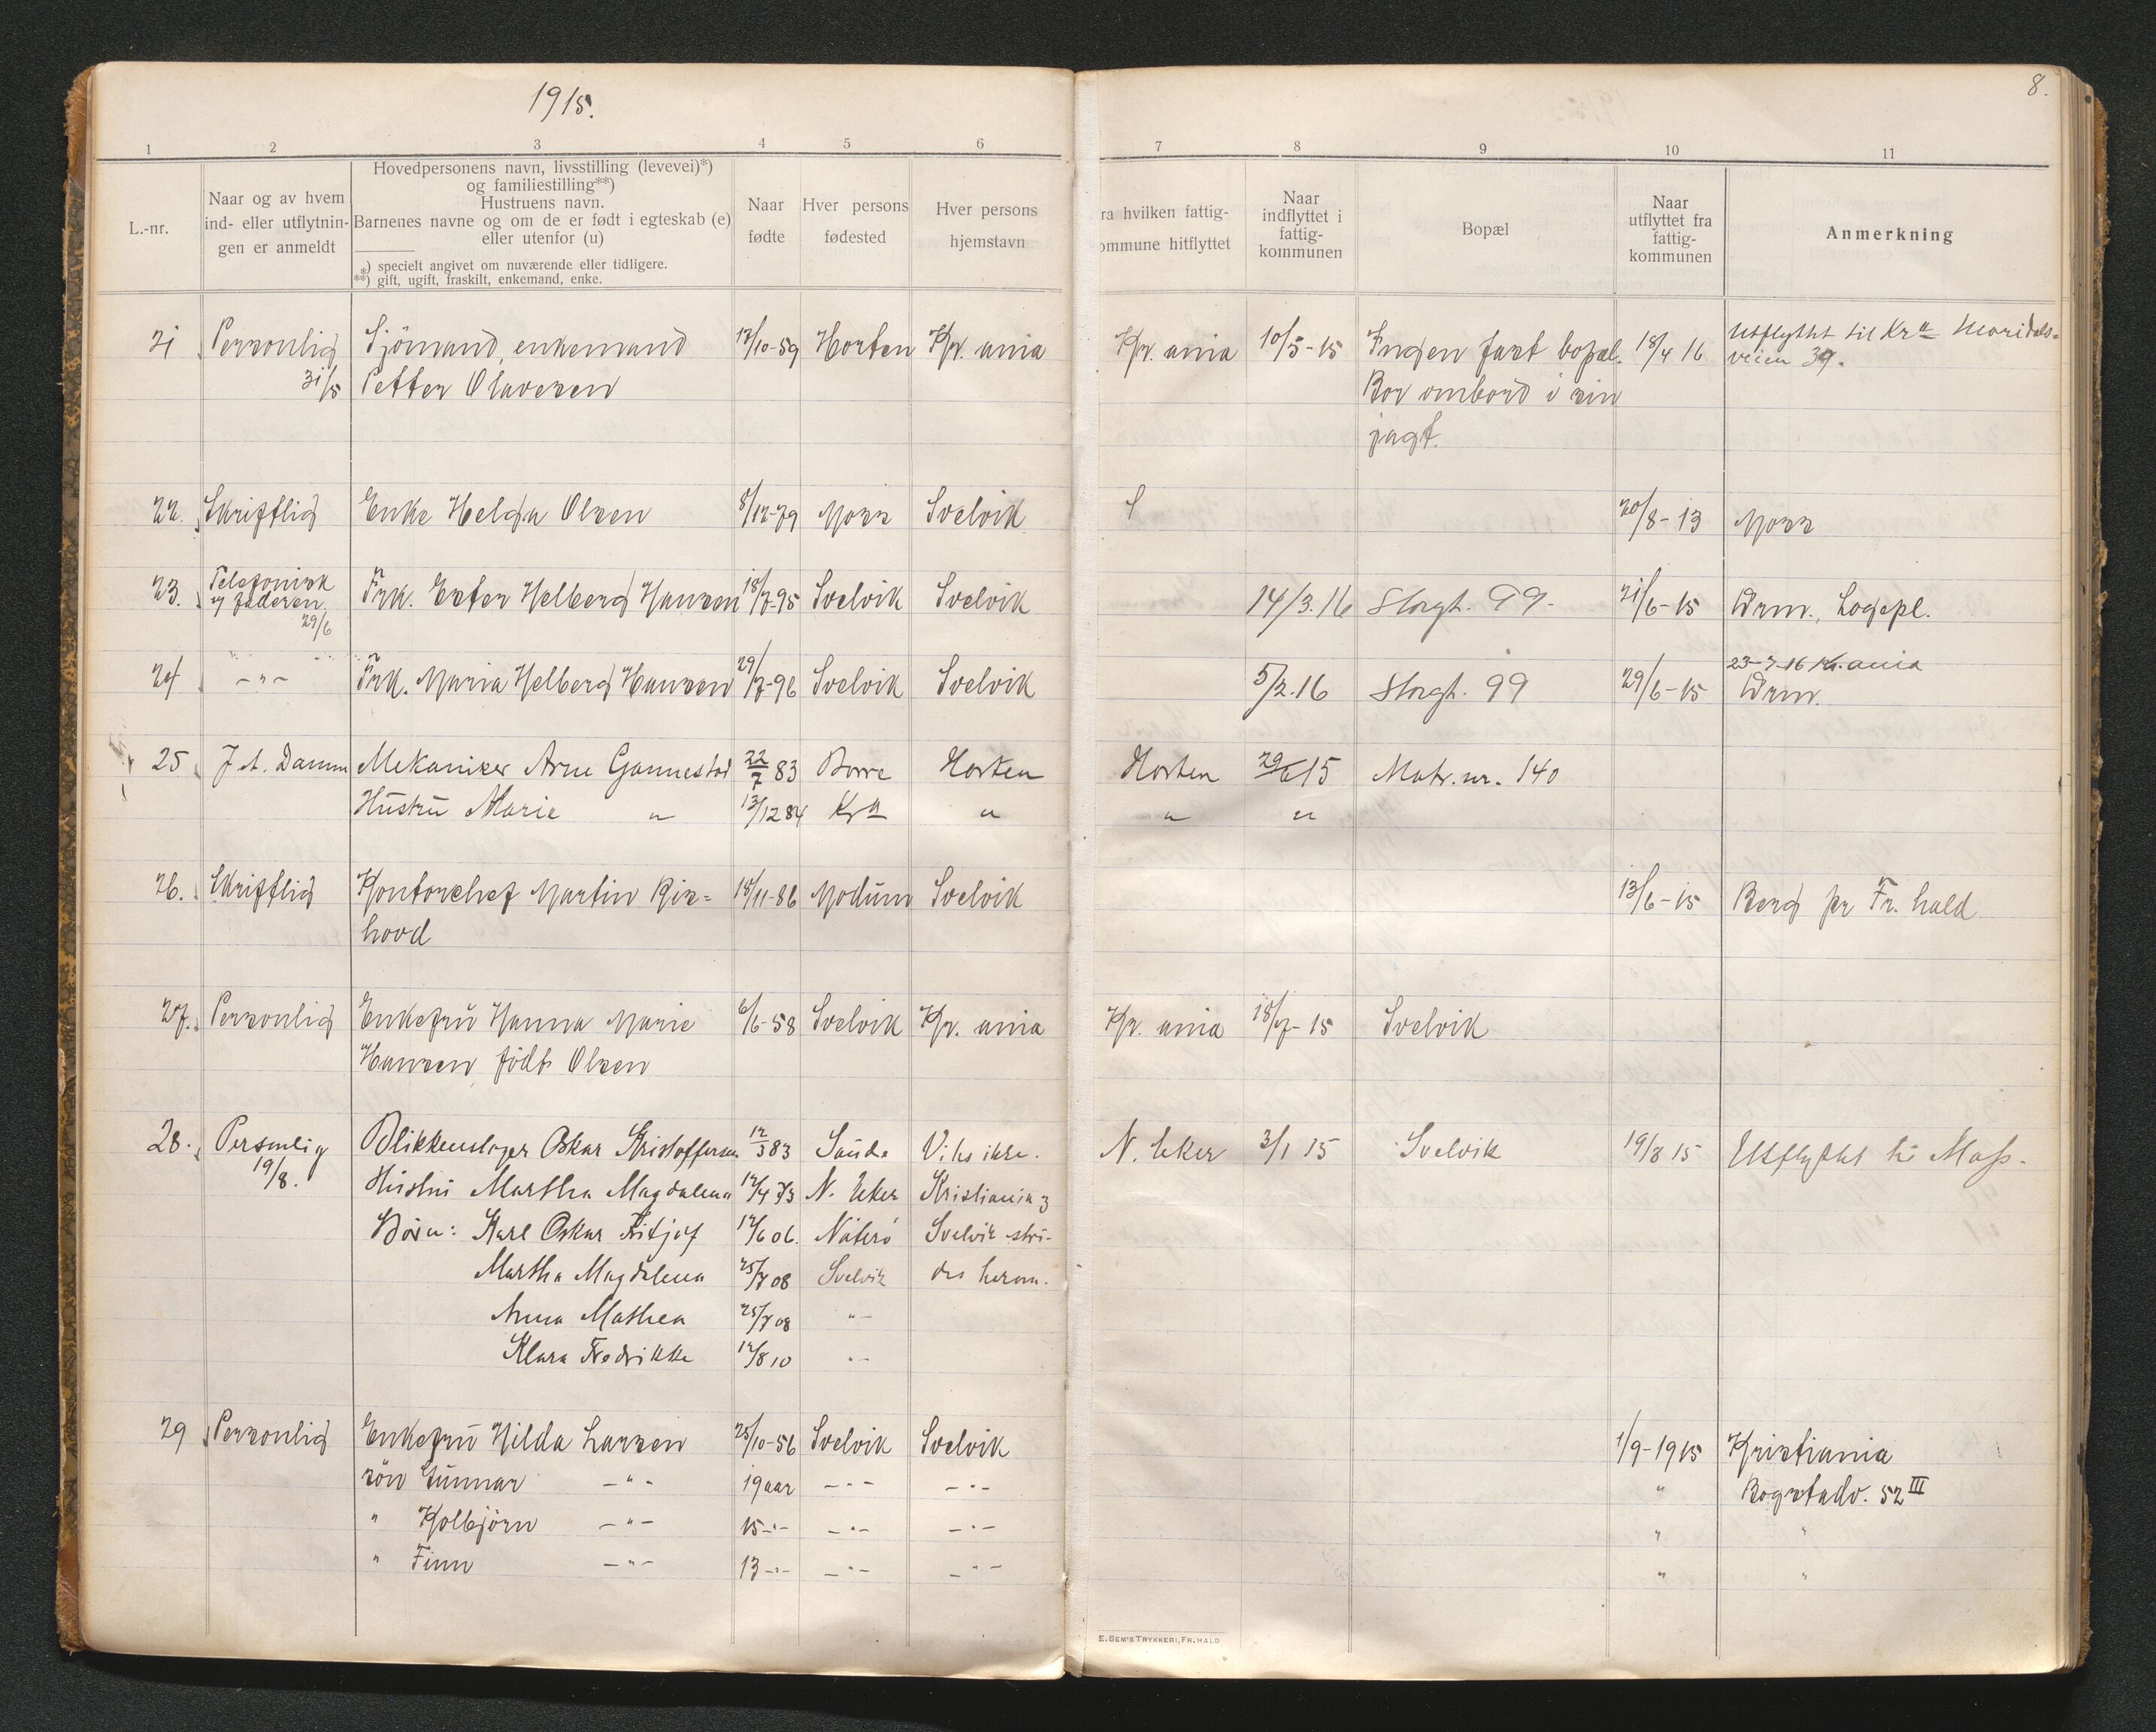 1915.
8.
1 2 3 4 5 6 7 8 9 10 11
L.-nr.
Naar og av hvem
ind- eller utflytnin-
gen er anmeldt
Hovedpersonens navn, livsstilling (levevei)*)
og familiestilling**)
Hustruens navn.
Barnenes navne og om de er født i egteskab (e)
eller utenfor (u)
*) specielt angivet om nuværende eller tidligere.
**) gift, ugift, fraskilt, enkemand, enke.
Naar
fødte
Hver persons
fødested
Hver persons
hjemstavn
ra hvilken fattig-
ommune hitflyttet
Naar
indflyttet i
fattig-
kommunen
Bopæl
Naar
utflyttet fra
fattig-
kommunen
Anmerkning
21 Personlig Sjömand, enkemand 12/10-59 Horten Kr. ania Kr. ania 10/5-15 Ingen fast bopæl. 18/4 16 Utflyttet til Kra Maridals-
31/5 Petter Olavesen Bor ombord i sin veien 39.
jagt.
22. Skriftlig Enke Helga Olsen 8/12-79 Moss Svelvik 20/8-13 Moss
23. Telefonisk Frk. Ester Helberg Hansen 18/7-95 Svelvik Svelvik 14/3.16 Storgt. 99- 21/6-15 Drm., Logepl.
af faderen
29/6
24 -"- Frk. Maria Helberg Hansen 29/7-96 Svelvik Svelvik 5/2.16 Storgt. 99 29/6-15 23-7-16 Kr.ania
Drm.
25 J. A. Damm Mekaniker Arne Gannestad 22/7 83 Borre Horten Horten 29/6 15 Matr. nr. 140
Hustru Marie " 13/12 84 Kra " " "
26. Skriftlig Kontorchef Martin Ris= 18/11-86 Modum Svelvik 13/6-15 Berg pr Fr. hald
hovd
27. Personlig Enkefru Hanna Marie 6/6-58 Svelvik Kr. ania Kr. ania 18/7-15 Svelvik
Hansen födt Olsen
28. Personlig Blikkenslager Oskar Kristoffersen 12/3 83 Sande Vites ikke. N. Eker 3/1 15 Svelvik 19/8 15 Utflyttet til Moss.
19/8. Hustru Martha Magdalena 12/4 73 N. Eker Kristiania og
Börn: Karl Oskar Fritjof 12/6 06. Nöterö Svelvik stri-
Martha Magdalena 25/7 08 Svelvik des herom.
Anna Mathea 25/7 08 -"-
Klara Fredrikke 12/8 10 -"-
29 Personlig Enkefru Hilda Larsen 25/10-56 Svelvik Svelvik 1/9-1915 Kristiania
sön Gunnar -"- 19 aar -"- -"- " Bogstadv. 52 III
" Kolbjörn -"- 15 -"- -"- -"- " "
" Finn -"- 13 -"- -"- -"- " "
E. SEM'S TRYKKERI, FR.HALD